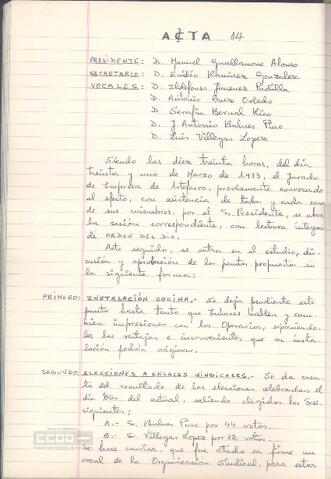 ACTA 14
PRESIDENTE: D. Manuel Guallanone Alonso
SECRETARIO: D. Emilio Ramirez Gonzalez
VOCALES: D. Ildefonso Jimenez Padilla
D. Antonio Ovedo
D. Serafin Bernal Rico
D. J. Antonio Bulnes Pino
D. Luis Villegas Lopez
Siendo las diez treinta horas, del dia
treinta y uno de Marzo de 1.973, el Jurado
de Empresa de previamente convocado
al efecto, con asistencia de todos y cada uno
de sus miembros, por el Sr. Presidente, se abre
la sesión correspondiente, con lectura integra
de ORDEN DEL DIA.
Acto seguido, se entra en el estudio, dis-
cusión y aprobación de los puntos propuestos en
la siguiente forma:
PRIMERO: INSTALACIÓN COCINA.- Se deja pendiente este
punto hasta tanto que hallen y cam-
bien impresiones con los Operarios, exponiendo-
les las ventajas e inconvenientes que su insta-
lación podría originar.
SEGUNDO: ELECCIONES A ENLACES SINDICALES.- Se da cuen-
ta del resultado de las elecciones celebradas el
dia tres del actual, saliendo elegidos los Sres.
siguientes:
A.- Sr. Bulnes Pino por 44 votos.
B.- Sr. Villegas Lopez por 32 votos.
Se hace constar, que fue citado en firme un
vocal de la Organización Sindical, para estar
CCOO